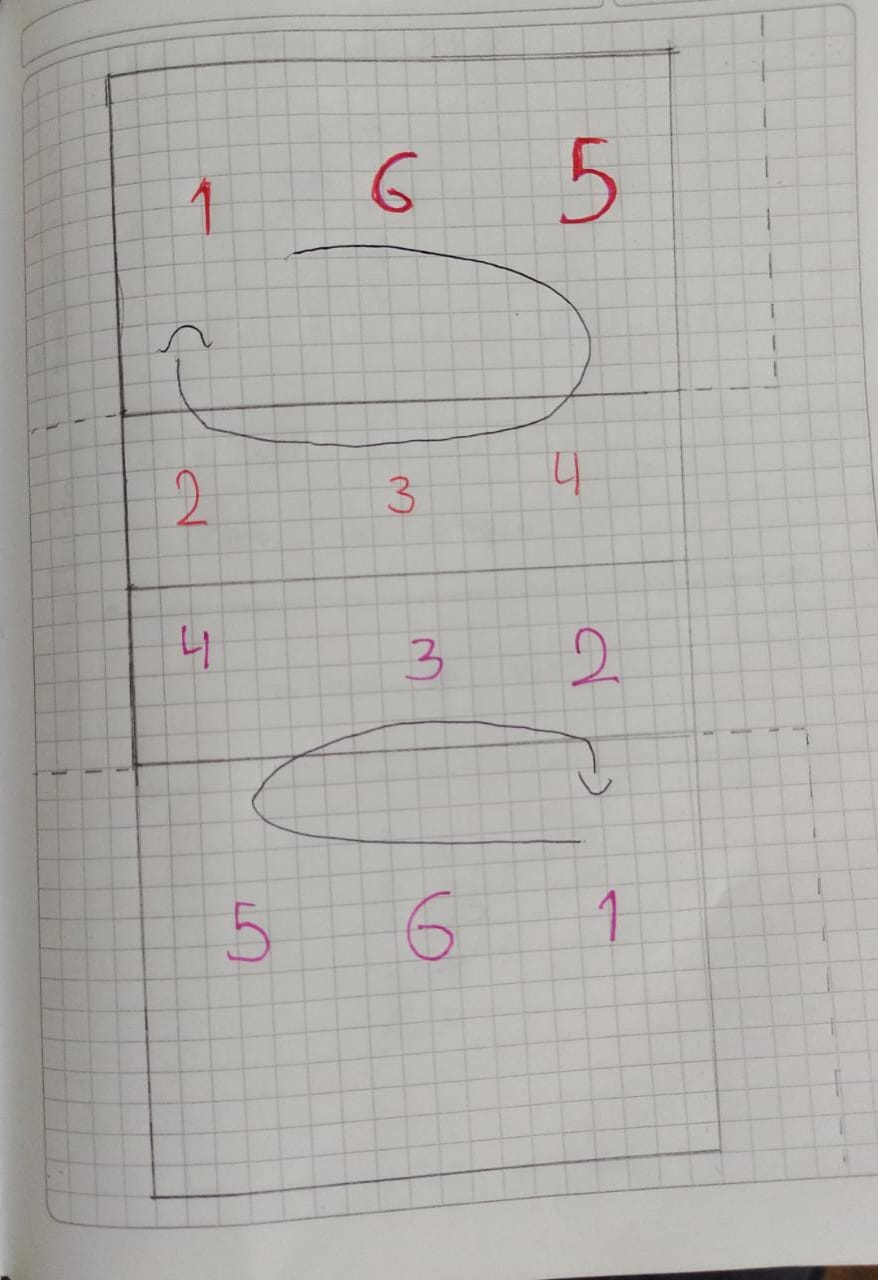 1 6 5
2 3 4
4 3 2
5 6 1